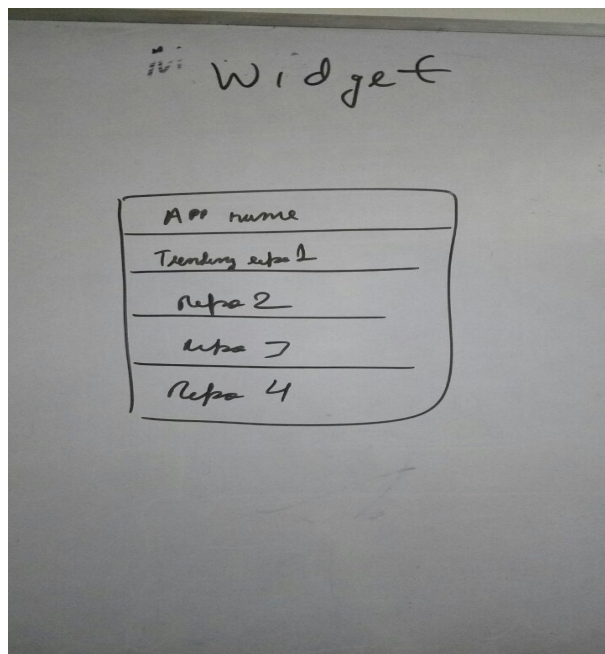 Widget
App name
Trending repo 1
Repo 2
repo 3
Repo 4